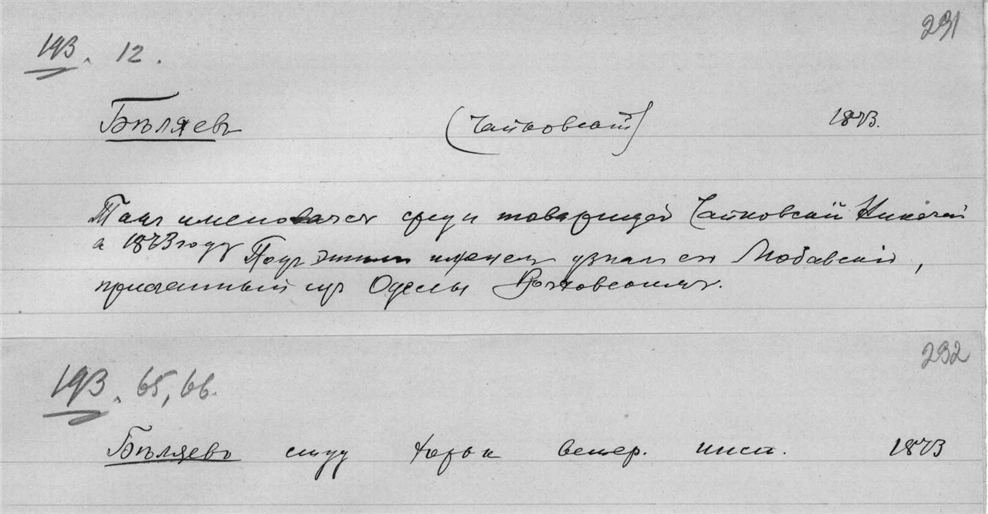 291
193. 12.
Бѣляевъ (Чайковскій) 1873.
Такъ именовался среди товарищей Чайковскій Николай
в 1873 году
Подъ этимъ именемъ узналъ его Любавскій,
присланный изъ Одессы Волховскимъ.
292
193. 65, 66.
Бѣляевъ студ Харьк ветер. инст. 1873